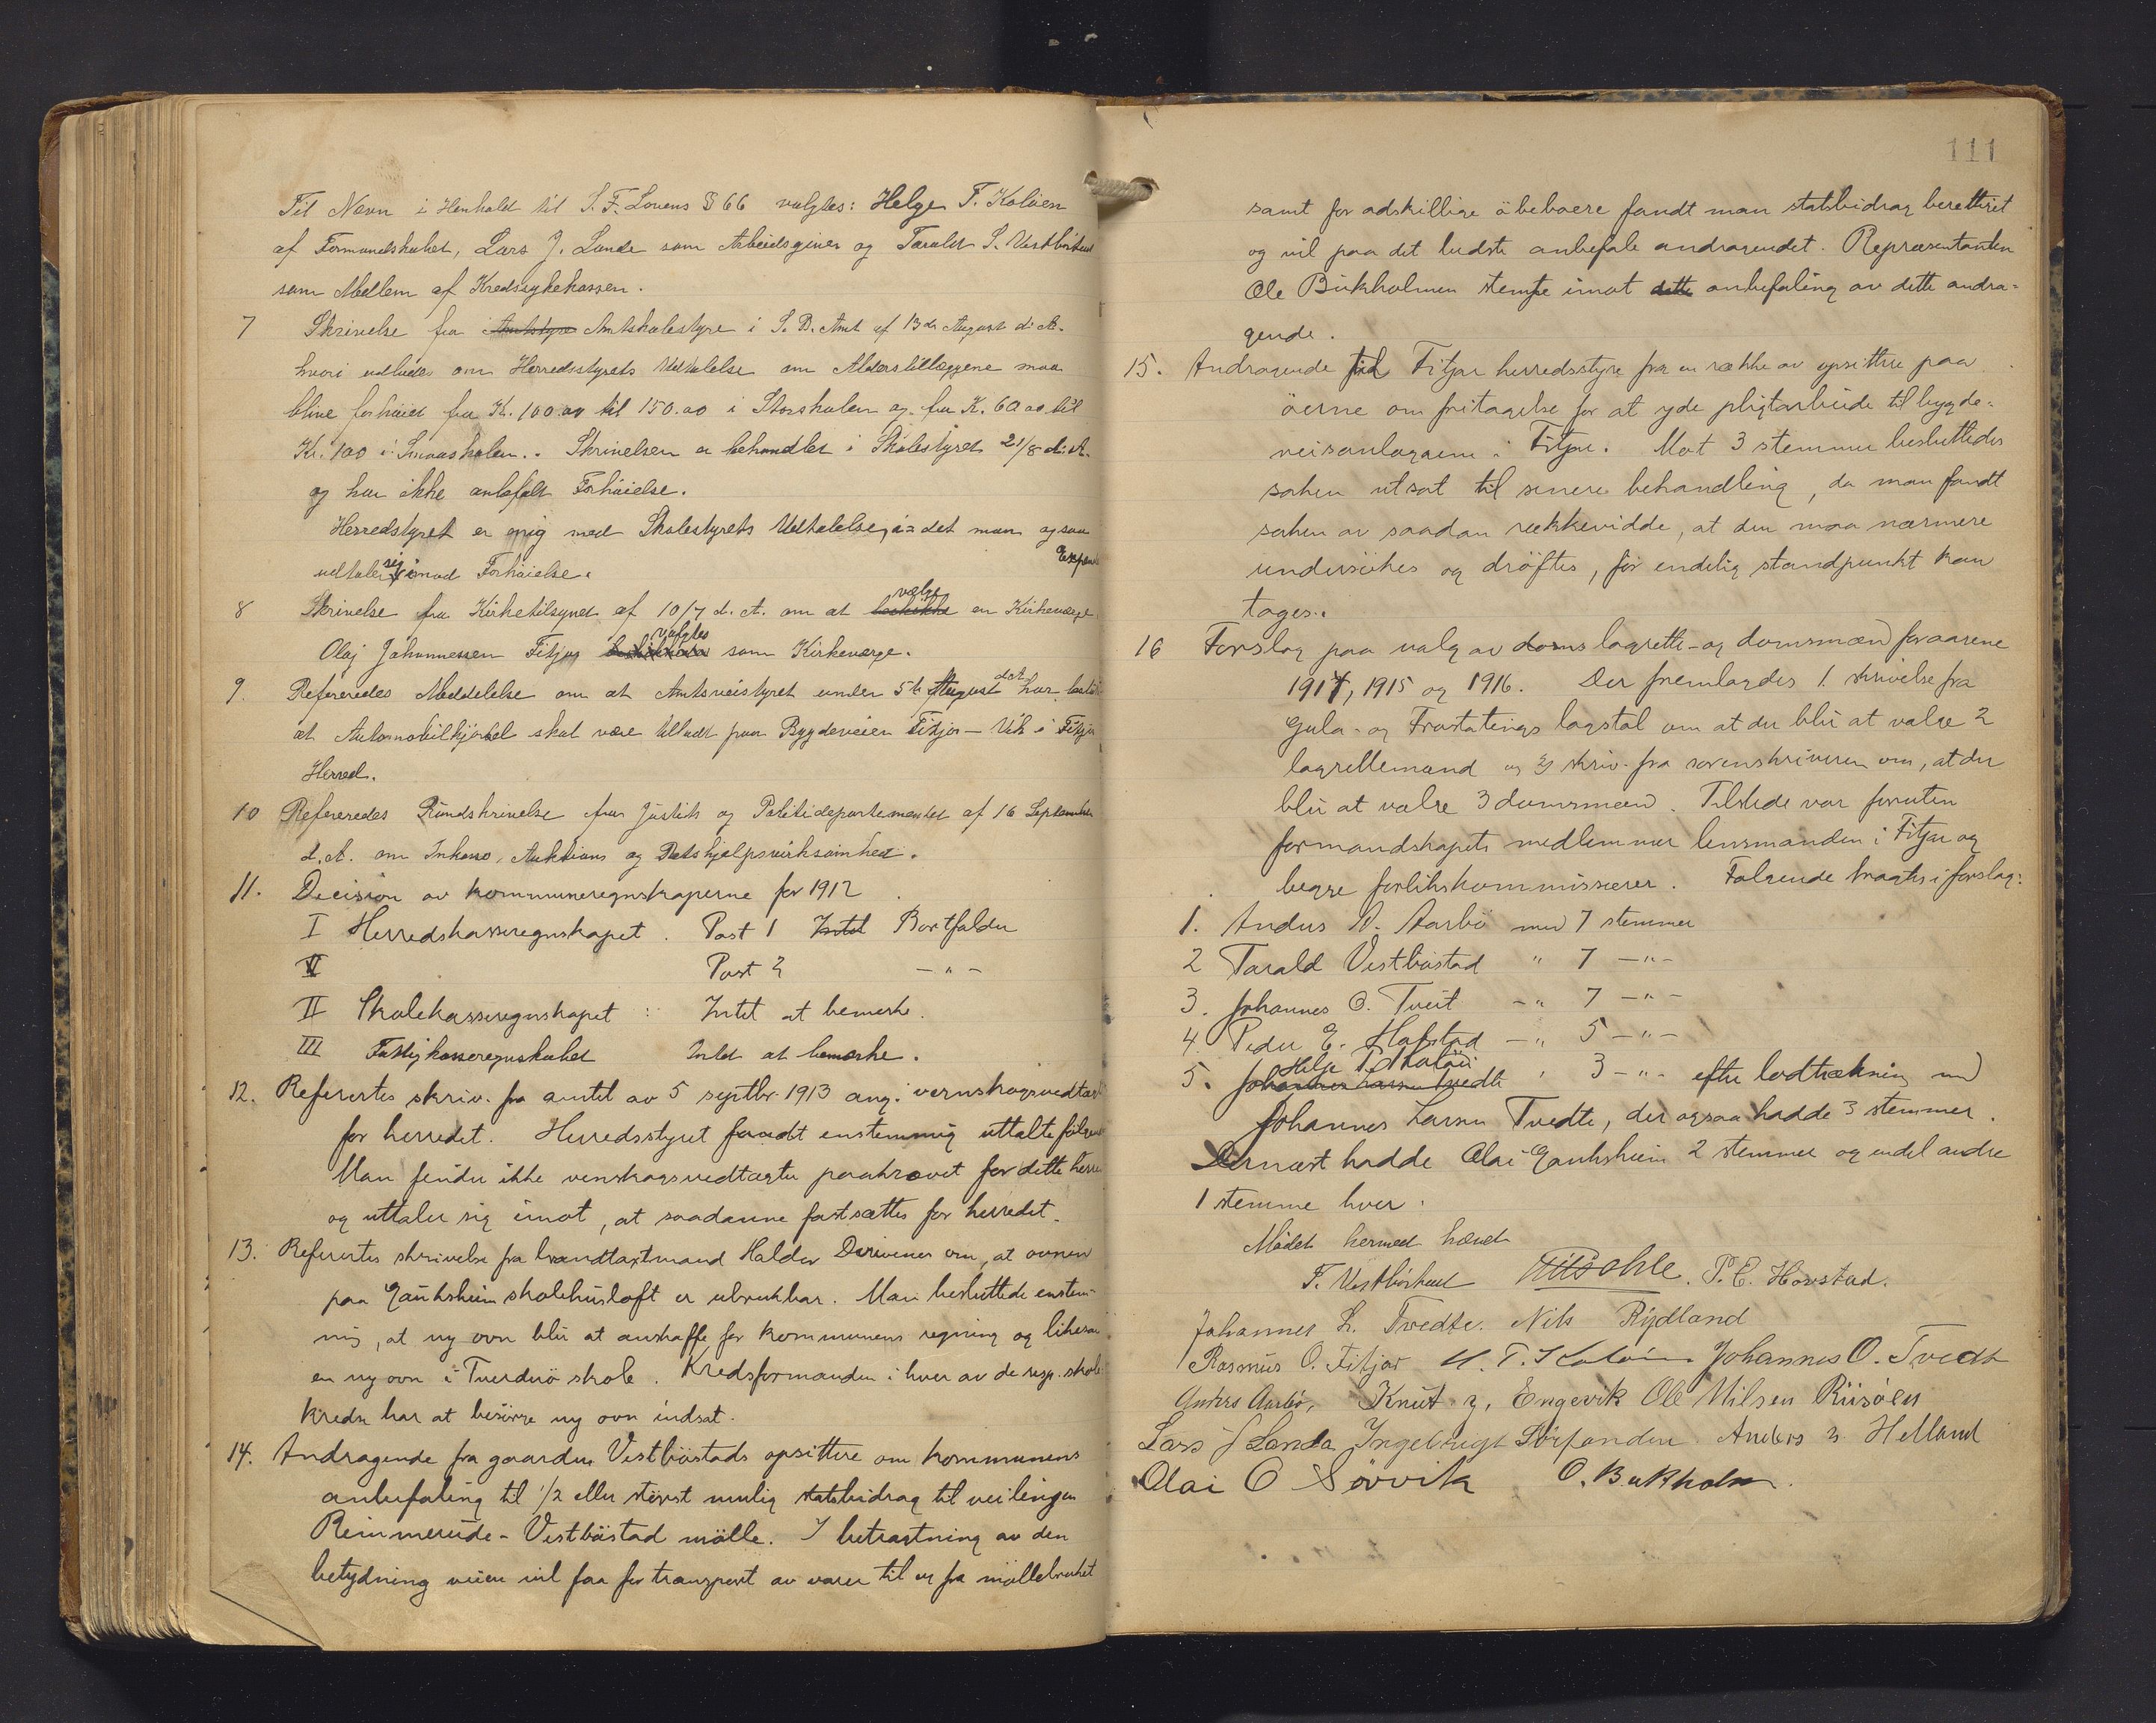 Til Nevn i Henhold til S. F. Lovens § 66 valgtes: Helge T. Koløen
af Formandskabet, Lars J. Lande som Arbeidsgiver og Tarald S. Vestbøstad
som Medlem af Kredssykekassen.
7 Skrivelse fra Amtstyre Amtskolestyre i S. B. Amt af 13de August d. A.
hvori udbedes om Herredsstyrets Udtalelse om Alderstillæggene maa
blive forhøiet fra Kr. 100.00 til 150.00 i Storskolen og fra K. 60.00 til
Kr. 100 i Smaaskolen. Skrivelsen er behandlet i Skolestyret 21/8 d. A.
og har ikke anbefalt Forhøielse.
Herredstyret er enig med Skolestyrets Udtalelse, i det man ogsaa
udtaler sig imod Forhøielse. Exped
8 Skrivelse fra Kirketilsynet af 10/7 d. A. om at beskikke vælge en Kirkeværge.
Olaj Johannessen Fitjar valgtes som Kirkeværge.
9. Refereredes Meddelelse om at Amtsveistyret under 5te August d. A. har
at Automobilkjørsel skal være tilladt paa Bygdeveien Fitjar – Vik i Fitjar
Herred.
10 Refereredes Rundskrivelse fra Justits og Politidepartementet af 16 September
d. A. om Inkasso, Auktions og Retshjælpsvirksomhed.
11. Decision av kommuneregnskaperne for 1912
I Herredskasseregnskapet. Post 1 Intet Bortfalder
II Post 2 – " –
II Skolekasseregnskapet : Intet at bemerke.
III Fattigkasseregnskabet Intet at bemærke.
12. Refereertes skriv. fra amtet av 5 septbr. 1913 ang. vernskogvedtægt
for herredet. Herredsstyret fandt enstemmig uttalte følgende
Man finder ikke vernskogsvedtægter paakrævet for dette herred
og uttaler sig imot, at saadanne fastsættes for herredet.
13. Refereertes skrivelse fra brandtaxtmand Haldor om, at ovnen
paa Gaukshiem skolehusloft er ubrukbar. Man besluttede enstem-
mig, at ny ovn blir at anskaffe for kommunens regning og likesaa
en ny ovn i Tverderö skole. Kredsformanden i hver av de resp. skole
kredse har at besörge ny ovn indsat.
14. Andragende fra gaarden Vestböstads opsittere om kommunens
anbefaling til 1/2 eller störst mulig statsbidrag til veilengen
Rimmereide – Vestböstad mölle. I betragtning av den
betydning veien vil faa for transport av varer til og fra möllebruket
111
samt for adskillige öbeboere fandt man statsbidrag berettiget
og vil paa det bedste anbefale andragendet. Repræsentanten
Ole Bukholmen stemte imot dette anbefaling av dette andra-
gende.
15. Andragende til Fitjar herredsstyre fra en række av opsittere paa
öerne om fritagelse for at yde pligtarbeide til bygde-
veisanlæggene i Fitjar. Mot 3 stemmer besluttedes
saken utsat til senere behandling, da man fandt
saken av saadan rækkevidde, at den maa nærmere
undersökes og dröftes, för endelig standpunkt kan
tages.
16 Forslag paa valg av doms lagrette- og domsmænd for aarene
1914, 1915 og 1916. Der fremlagdes 1. skrivelse fra
Gula- og Frostatings lagstol om at der blir at vælge 2
lagrettemænd og 2) skriv. fra sorenskriveren om, at der
blir at vælge 3 domsmænd. Tilstede var foruten
formandskapets medlemmer lensmanden i Fitjar og
begge forlikskommissærer. Følgende bragtes i forslag:
1. Anders N. Aarbö med 7 stemmer
2 Tarald Vestböstad " 7 – " –
3. Johannes O. Tveit – " 7 – " –
4. Peder E. Hafstad – " 5 – " –
5. Johannes Larsen Tvedte Helge T. Koløen " 3 – " – efter lodtrækning med
Johannes Larsen Tvedte, der ogsaa hadde 3 stemmer.
Dernæst hadde Olai Gaukshiem 2 stemmer og endel andre
1 stemme hver.
Mødet hermed hævet
T. Vestbøstad P. E. Hovstad.
Johannes L. Tvedte. Nils Rydland
Rasmus O. Fitjar H. T. Koløen Johannes O. Tvedt
Anders Aarbø, Knut J. Engevik Ole Nilsen Riisøen
Lars J Landa Ingebrigt Sørfonden Anders N. Helland
Olai O Sørvik O. Bukholm.